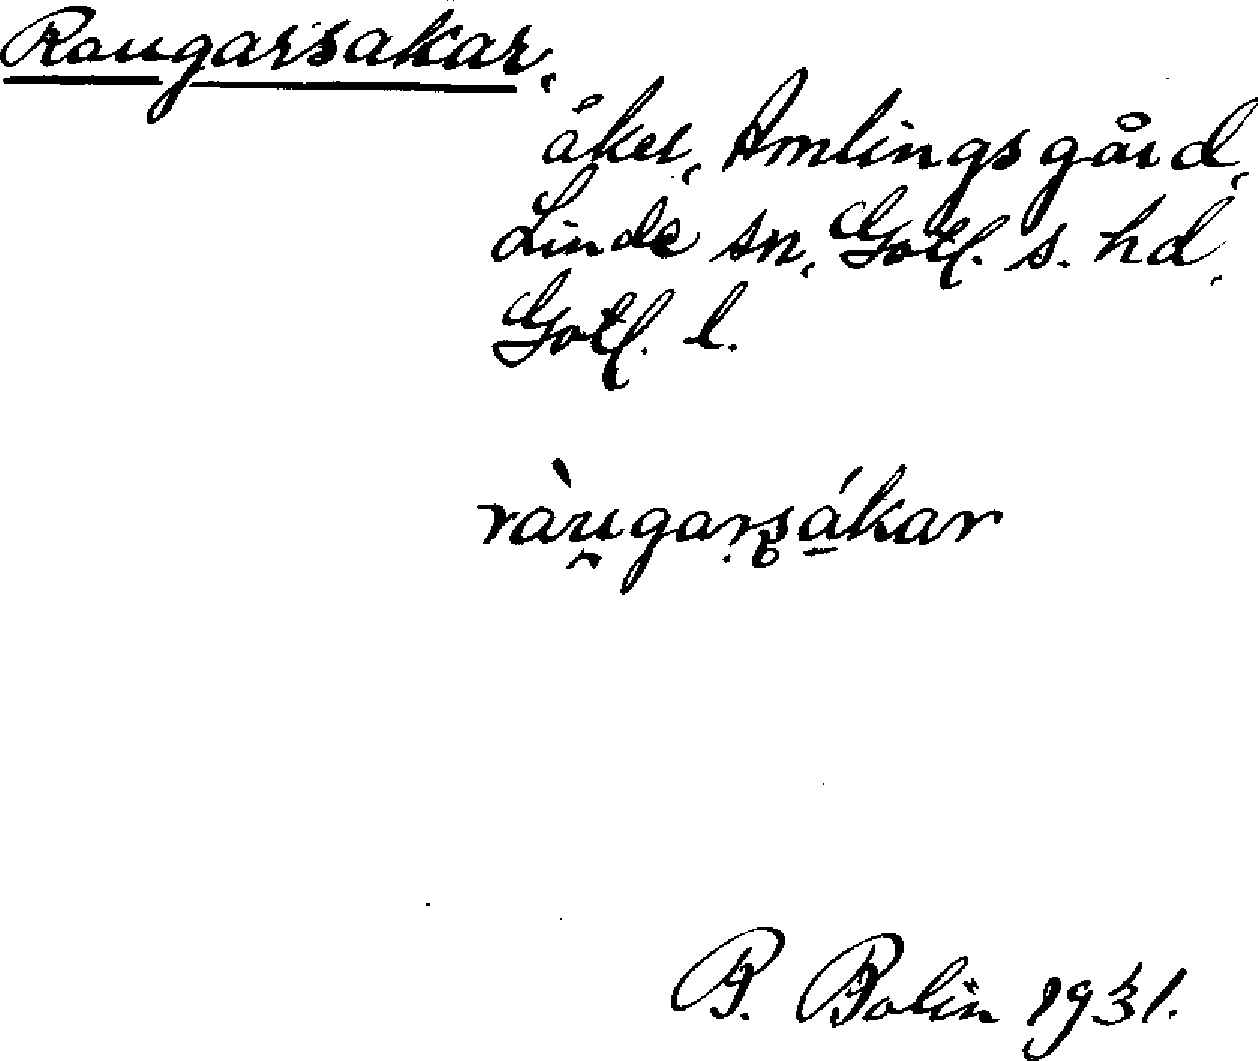 Raugarsakar,
åker, Amlingsgård,
Linde sn, Gotl. s. hd,
Gotl. l.
ràu̯garsá̱kar
B. Bolin 1931.